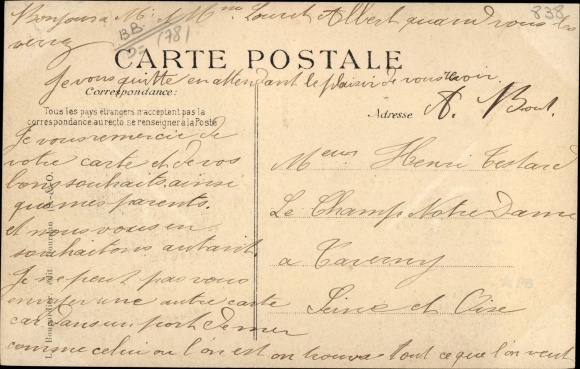 Bonjours a Mr et Mme Louret Albert quand vous les
verrez
838
BB
(78)
CARTE POSTALE
Je vous quitte en attendant le plaisir de vous revoir.
Correspondance:
Adresse
A. Bout.
Tous les pays étrangers n'acceptent pas la
correspondance au recto se renseigner à la Poste
Je vous remercie de
votre carte et de vos
bons souhaits. ainsi
que mes parents.
et nous vous en
souhaitons autant.
Je ne peut pas vous
envoyer une autre carte
car dans un port de mer
comme celui ou l'on est on trouva tout ce que l'on veut
Henri Testard
Le Champ Notre Dame
a Taverny
Seine et Oise